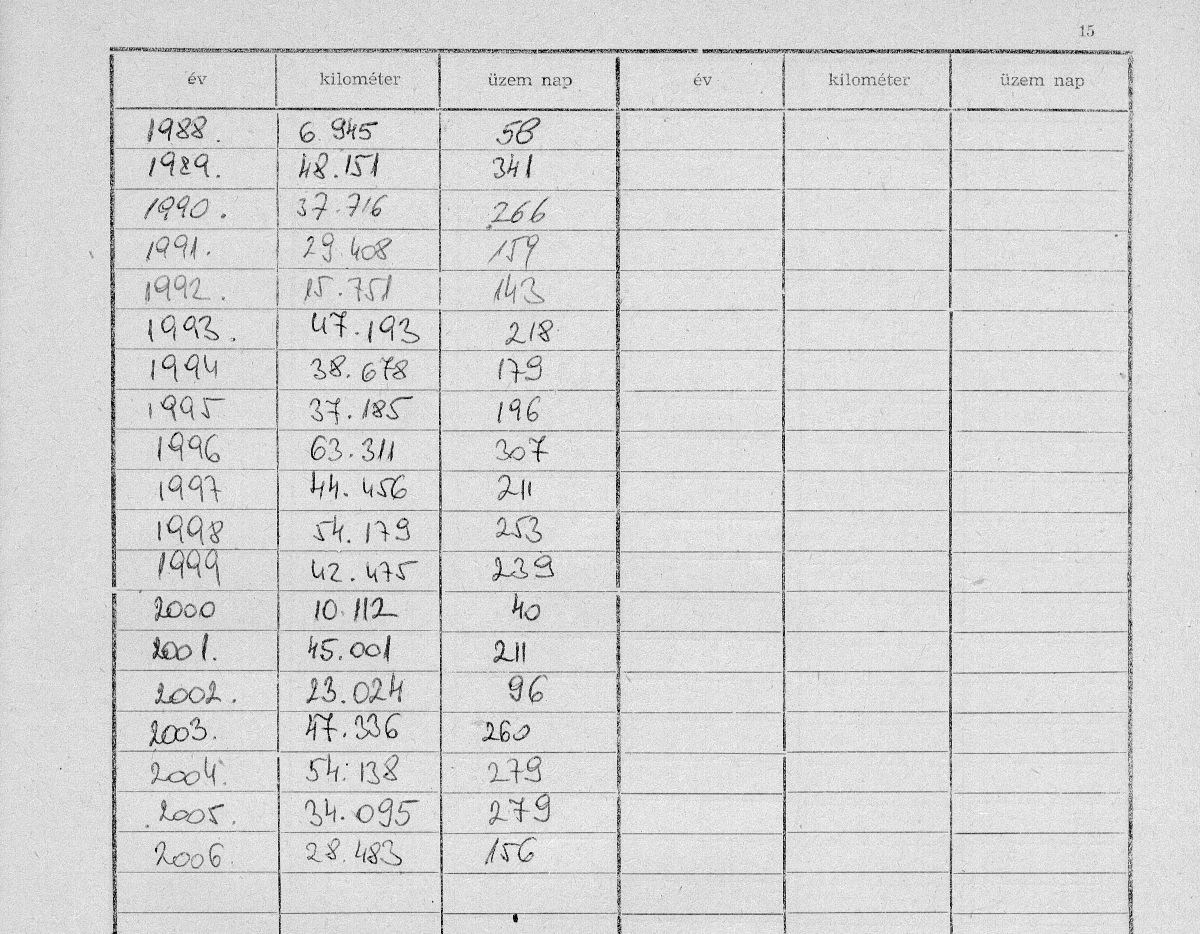 15
év kilométer üzem nap év kilométer üzem nap
1988. 6 945 58
1989. 48.151 341
1990. 37.716 266
1991. 29.408 159
1992. 15.751 143
1993. 47.193 218
1994 38.678 179
1995 37.185 196
1996 63.311 307
1997 44.456 211
1998 54.179 253
1999 42.475 239
2000 10.112 40
2001. 45.001 211
2002. 23.024 96
2003. 47.336 260
2004. 54.138 279
2005. 34.095 279
2006. 28.483 156